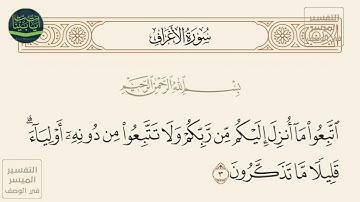 سُورَةُ الأَعْرَافِ
بِسْمِ ٱللَّهِ ٱلرَّحْمَٰنِ ٱلرَّحِيمِ
ٱتَّبِعُوا۟ مَآ أُنزِلَ إِلَيْكُم مِّن رَّبِّكُمْ وَلَا تَتَّبِعُوا۟ مِن دُونِهِۦٓ أَوْلِيَآءَۗ
قَلِيلًا مَّا تَذَكَّرُونَ ٣
التفسير
الميسر
في الوصف
التفسير
الميسر